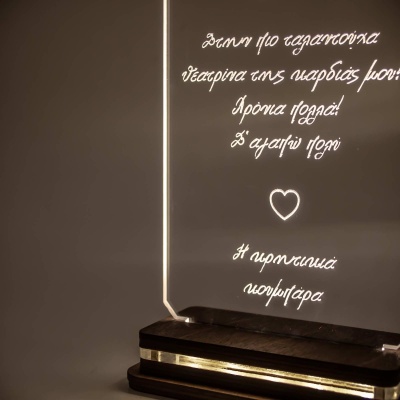 Στην πιο ταλαντούχα
θεατρίνα της καρδιάς μου!
Χρόνια πολλά!
Σ'αγαπώ πολύ
Η κρητικιά
κουμπάρα